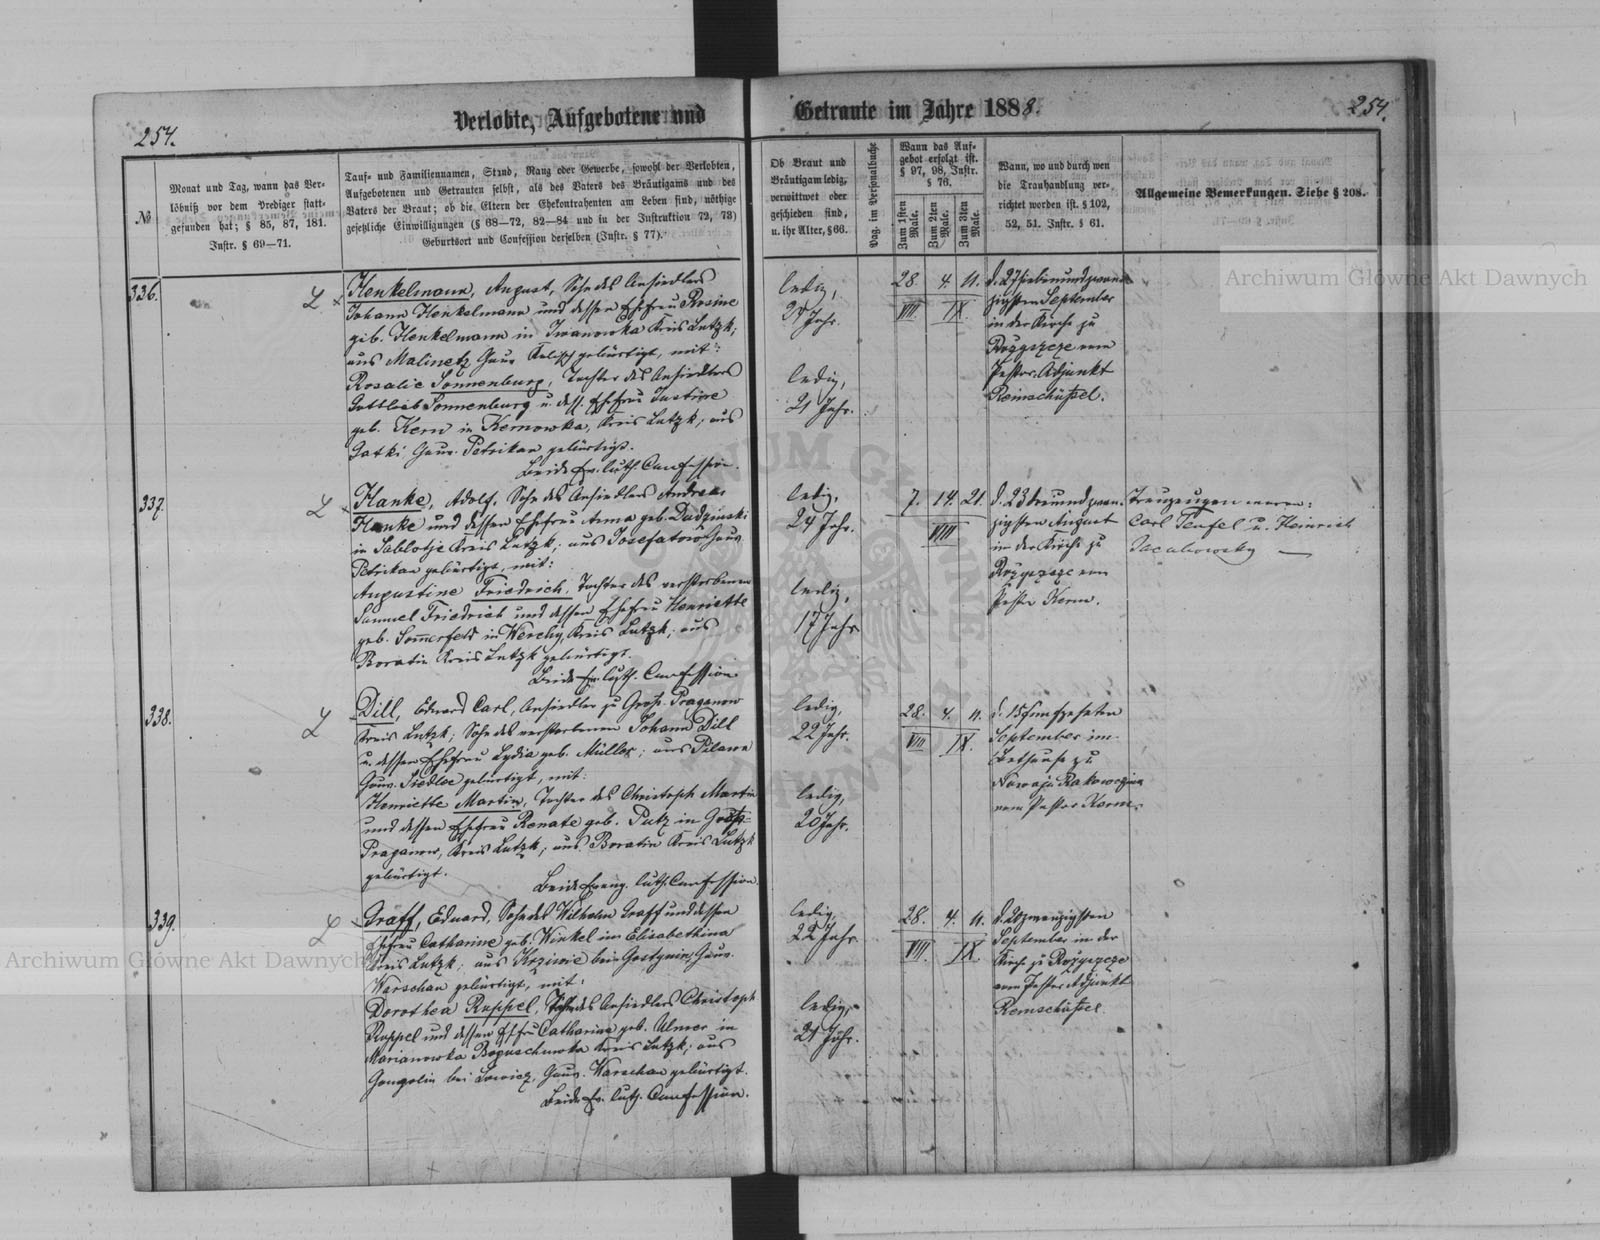 254.
Verlobte, Aufgebotene und
Getraute im Jahre 1888.
254.
№
Monat und Tag, wann das Ver-
löbniß vor dem Prediger statt-
gefunden hat; § 85, 87, 181.
Instr. § 69—71.
Tauf- und Familiennamen, Stand, Rang oder Gewerbe, sowohl der Verlobten,
Aufgebotenen und Getrauten selbst, als des Vaters des Bräutigams und des
Vaters der Braut; ob die Eltern der Ehekontrahenten am Leben sind, nöthige
gesetzliche Einwilligungen (§ 68—72, 82—84 und in der Instruktion 72, 73)
Geburtsort und Confession derselben (Instr. § 77).
Ob Braut und
Bräutigam ledig,
verwittwet oder
geschieden sind,
u. ihr Alter, § 66.
Pag. im Personalbuche
Wann das Auf-
gebot erfolgt ist.
§ 97, 98, Instr.
§ 76.
Zum 1sten Male.
Zum 2ten Male.
Zum 3ten Male.
Wann, wo und durch wen
die Trauhandlung ver-
richtet worden ist. § 102,
52, 51. Instr. § 61.
Allgemeine Bemerkungen. Siehe § 208.
336.
Henkelmann, August, Sohn des Ansiedlers
Johann Henkelmann und dessen Ehefrau Rosine
geb. Henkelmann in Iwanowka Kreis Lutzk;
aus Malinetz Gouv. Kalisch gebürtigt, mit:
Rosalie Sonnenburg, Tochter des Ansiedlers
Gottlieb Sonnenburg u. dess. Ehefrau Justine
geb. Kern in Kernowka, Kreis Lutzk; aus
Gouv. Petrikau gebürtigt.
Beide Ev. luth. Confession.
ledig,
Jahr.
ledig,
21 Jahr.
28. 4. 11.
VIII. IX.
d. 27 siebenundzwan-
zigsten September
in der Kirche zu
Rożyszcze vom
Pastor-Adjunkt
Remschüssel.
337.
Hanke, Adolf, Sohn des Ansiedlers Andreas
Hanke und dessen Ehefrau Anna geb. Dudzinski
in Sablotje Kreis Lutzk; aus Josefatow Gouv.
Petrikau gebürtigt, mit:
Augustine Friedrich, Tochter des verstorbenen
Samuel Friedrich und dessen Ehefrau Henriette
geb. Sommerfeld in Werchy, Kreis Lutzk; aus
Boratin Kreis Lutzk gebürtigt.
Beide Ev. luth. Confession
ledig,
24 Jahr.
ledig,
17 Jahr
7. 14. 21.
VIII
d. 23 dreiundzwan-
zigsten August
in der Kirche zu
Rożyszcze vom
Pastor Kerm.
Trauzeugen waren:
Carl Teufel u. Heinrich
Jacubowsky —
338.
Dill, Eduard Carl, Ansiedler zu Groß-Praganow
Kreis Lutzk; Sohn des verstorbenen Johann Dill
u. dessen Ehefrau Lydia geb. Müller; aus Pilawa
Gouv. Siedlce gebürtigt, mit:
Henriette Martin, Tochter des Christoph Martin
und dessen Ehefrau Renate geb. Putz in Groß-
Praganow, Kreis Lutzk; aus Boratin Kreis Lutzk
gebürtigt.
Beide Evang. luth. Confession.
ledig,
22 Jahr.
ledig,
20 Jahr.
28. 4. 11.
VIII IX.
d. 15 fünfzehnten
September im
Bethause zu
Nowaja Rakowczina
vom Pastor Kerm.
339.
Graff, Eduard, Sohn des Wilhelm Graff und dessen
Ehefrau Catharine geb. Winkel in Elisabethina
Kreis Lutzk; aus Krziwie bei Gostynin, Gouv.
Warschau gebürtigt, mit:
Dorothea Ruppel, Tochter des Ansiedlers Christoph
Ruppel und dessen Ehefrau Catharina geb. Ulmer in
Marianowka Boguschuwka Kreis Lutzk; aus
Gongolin bei Lowicz, Gouv. Warschau gebürtigt.
Beide Ev. luth. Confession.
ledig,
22 Jahr.
ledig,
21 Jahr.
28. 4. 11.
VIII. IX
d. 20 zwanzigsten
September in der
Kirche zu Rożyszcze
vom Pastor Adjunkt
Remschüssel.
Archiwum Główne Akt Dawnych
Archiwum Główne Akt Dawnych